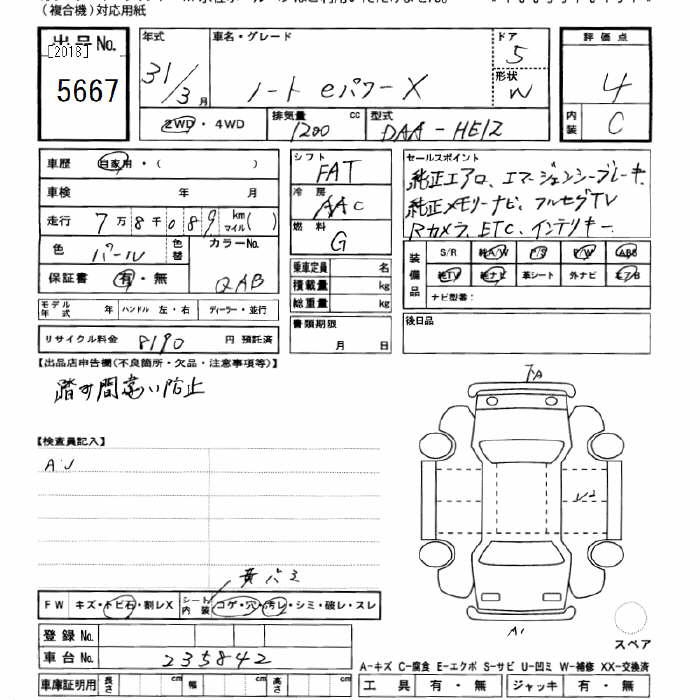 (複合機)対応用紙
出品No.
[2018]
5667
年式
31/3月
車名・グレード
ノート eパワーX
ドア
5
形状
W
評価点
4
内装
C
2WD・4WD
排気量
1200 cc
型式
DAA-HE12
車歴 自家用・( )
車検 年 月
走行 7万8千089 km マイル( )
色 パール 色替 カラーNo.
QAB
保証書 有・無
モデル年式 年 ハンドル 左・右 ディーラー・並行
リサイクル料金 8190 円 預託済
シフト
FAT
冷房
AAC
燃料
G
乗車定員 名
積載量 kg
総重量 kg
書類期限
月 日
セールスポイント
純正エアロ、エマージェンシーブレーキ
純正メモリーナビ、フルセグTV
Rカメラ、ETC、インテリキー
装備品
S/R 純A/W P/S P/W ABS
純TV 純ナビ 革シート 外ナビ エアB
ナビ型番:
後日品
【出品店申告欄(不良箇所・欠品・注意事項等)】
踏み間違い防止
【検査員記入】
AU
黄バミ
FW キズ・トビ石・割レX シート内装 コゲ・穴・汚レ・シミ・破レ・スレ
登録No.
車台No. 235842
車庫証明用 長さ cm 幅 cm 高さ cm
A1
スペア
A-キズ C-腐食 E-エクボ S-サビ U-凹ミ W-補修 XX-交換済
工具 有・無 ジャッキ 有・無